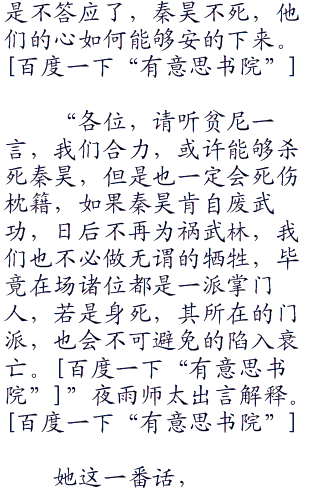 是不答应了，秦昊不死，他
们的心如何能够安的下来。
[百度一下“有意思书院”]
“各位，请听贫尼一
言，我们合力，或许能够杀
死秦昊，但是也一定会死伤
枕籍，如果秦昊肯自废武
功，日后不再为祸武林，我
们也不必做无谓的牺牲，毕
竟在场诸位都是一派掌门
人，若是身死，其所在的门
派，也会不可避免的陷入衰
亡。[百度一下“有意思书
院”]”夜雨师太出言解释。
[百度一下“有意思书院”]
她这一番话，